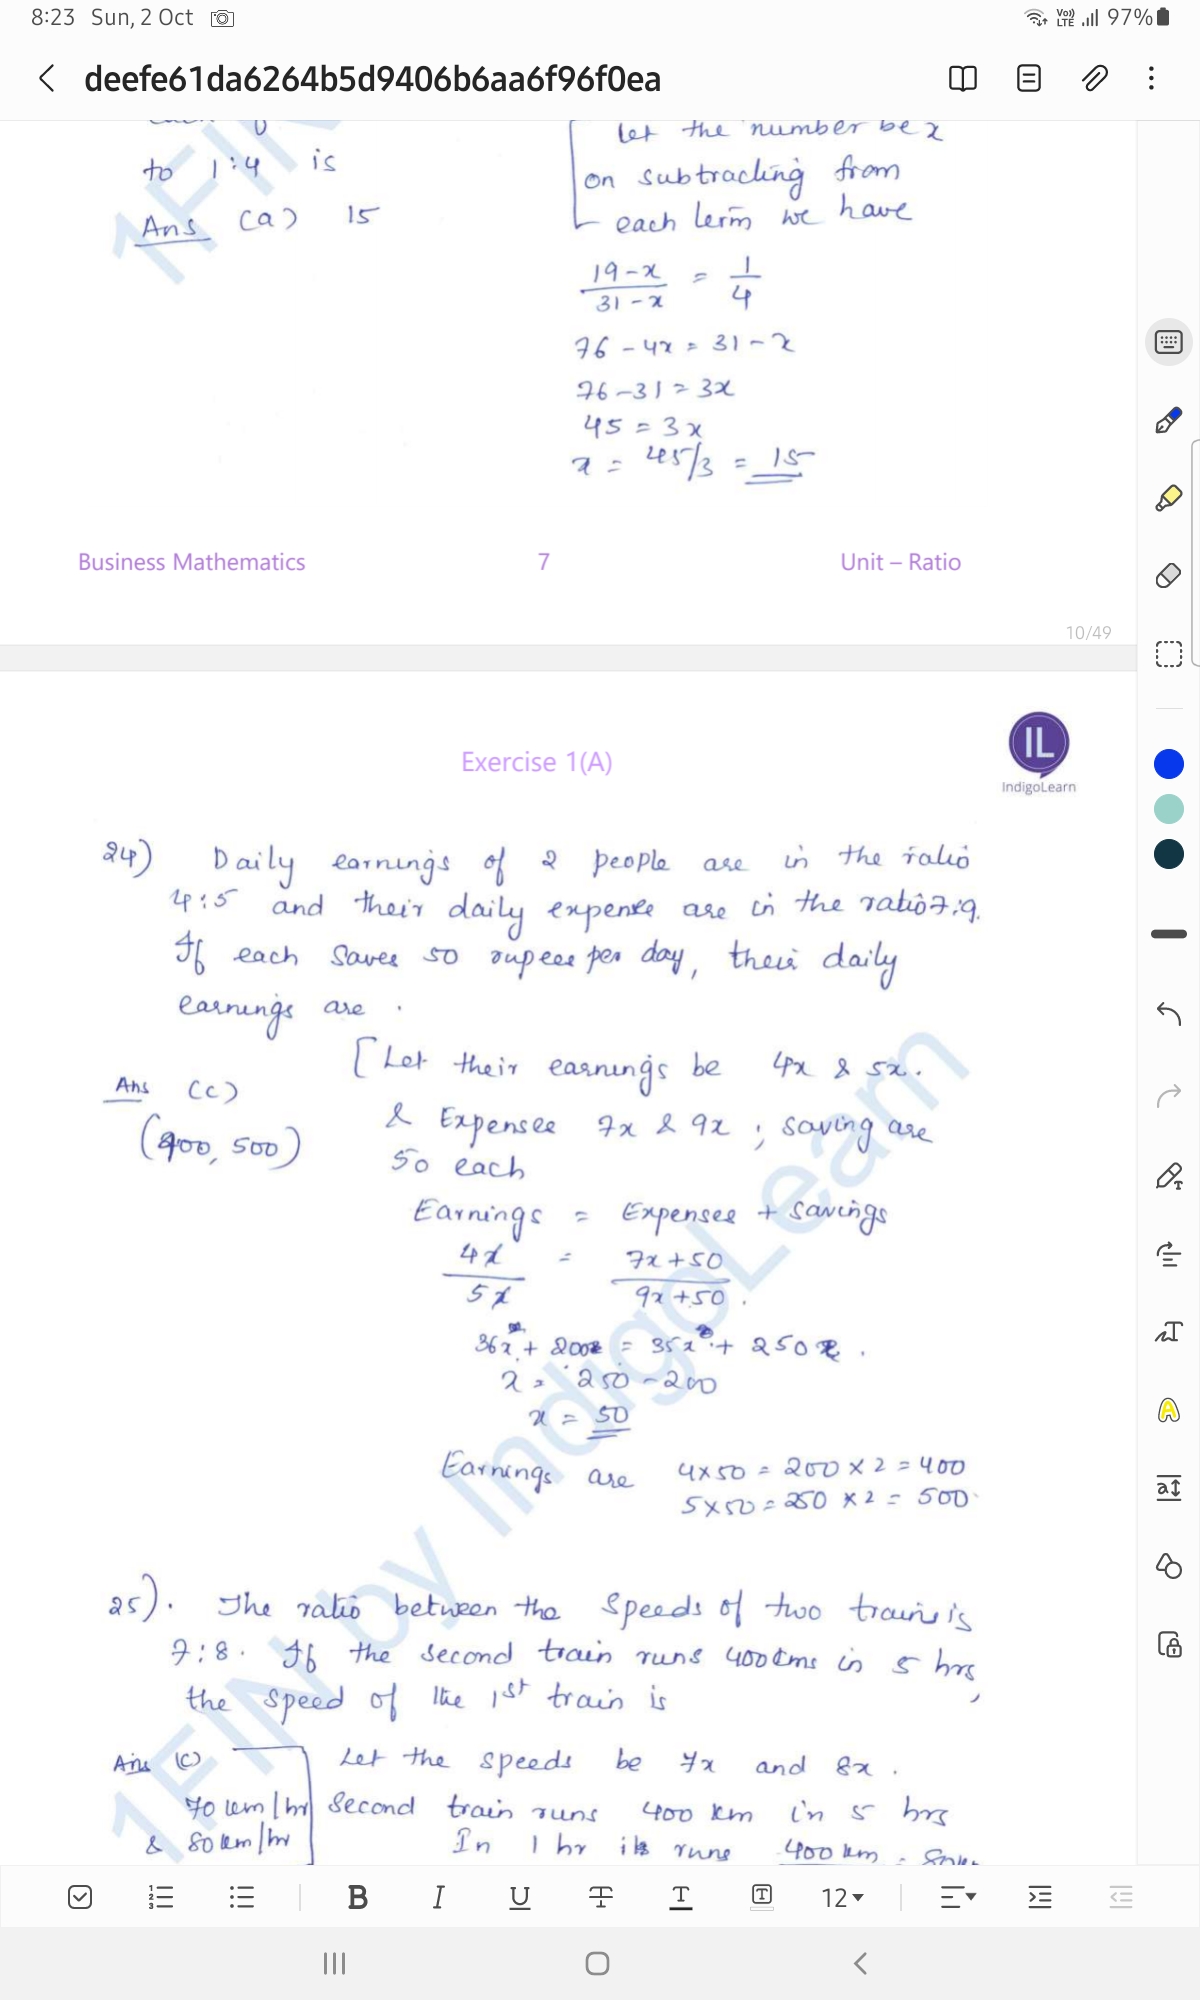 8:23 Sun, 2 Oct
Vo)) LTE 97%
deefe61da6264b5d9406b6aa6f96f0ea
to 1:4 is
Ans (a) 15
Let the number be x
on subtracting from
each term we have
19-x / 31-x = 1/4
76 - 4x = 31 - x
76-31 = 3x
45 = 3x
x = 45/3 = 15
Business Mathematics 7 Unit – Ratio
10/49
Exercise 1(A)
IL
IndigoLearn
24) Daily earnings of 2 people are in the ratio
4:5 and their daily expense are in the ratio 7:9.
If each saves 50 rupees per day, their daily
earnings are .
Ans (c)
(400, 500)
[Let their earnings be 4x & 5x.
& Expenses 7x & 9x ; saving are
50 each
Earnings = Expenses + savings
4x / 5x = 7x+50 / 9x+50 .
36x + 200 = 35x + 250 .
x = 250 - 200
x = 50
Earnings are 4x50 = 200 x 2 = 400
5x50 = 250 x 2 = 500
25). The ratio between the speeds of two trains is
7:8. If the second train runs 400kms in 5 hrs,
the speed of the 1st train is
Ans (c)
70 km/hr
& 80km/hr
Let the speeds be 7x and 8x .
Second train runs 400 km in 5 hrs
In 1 hr it runs 400 km
1FIN by IndigoLearn
B I U T T T 12